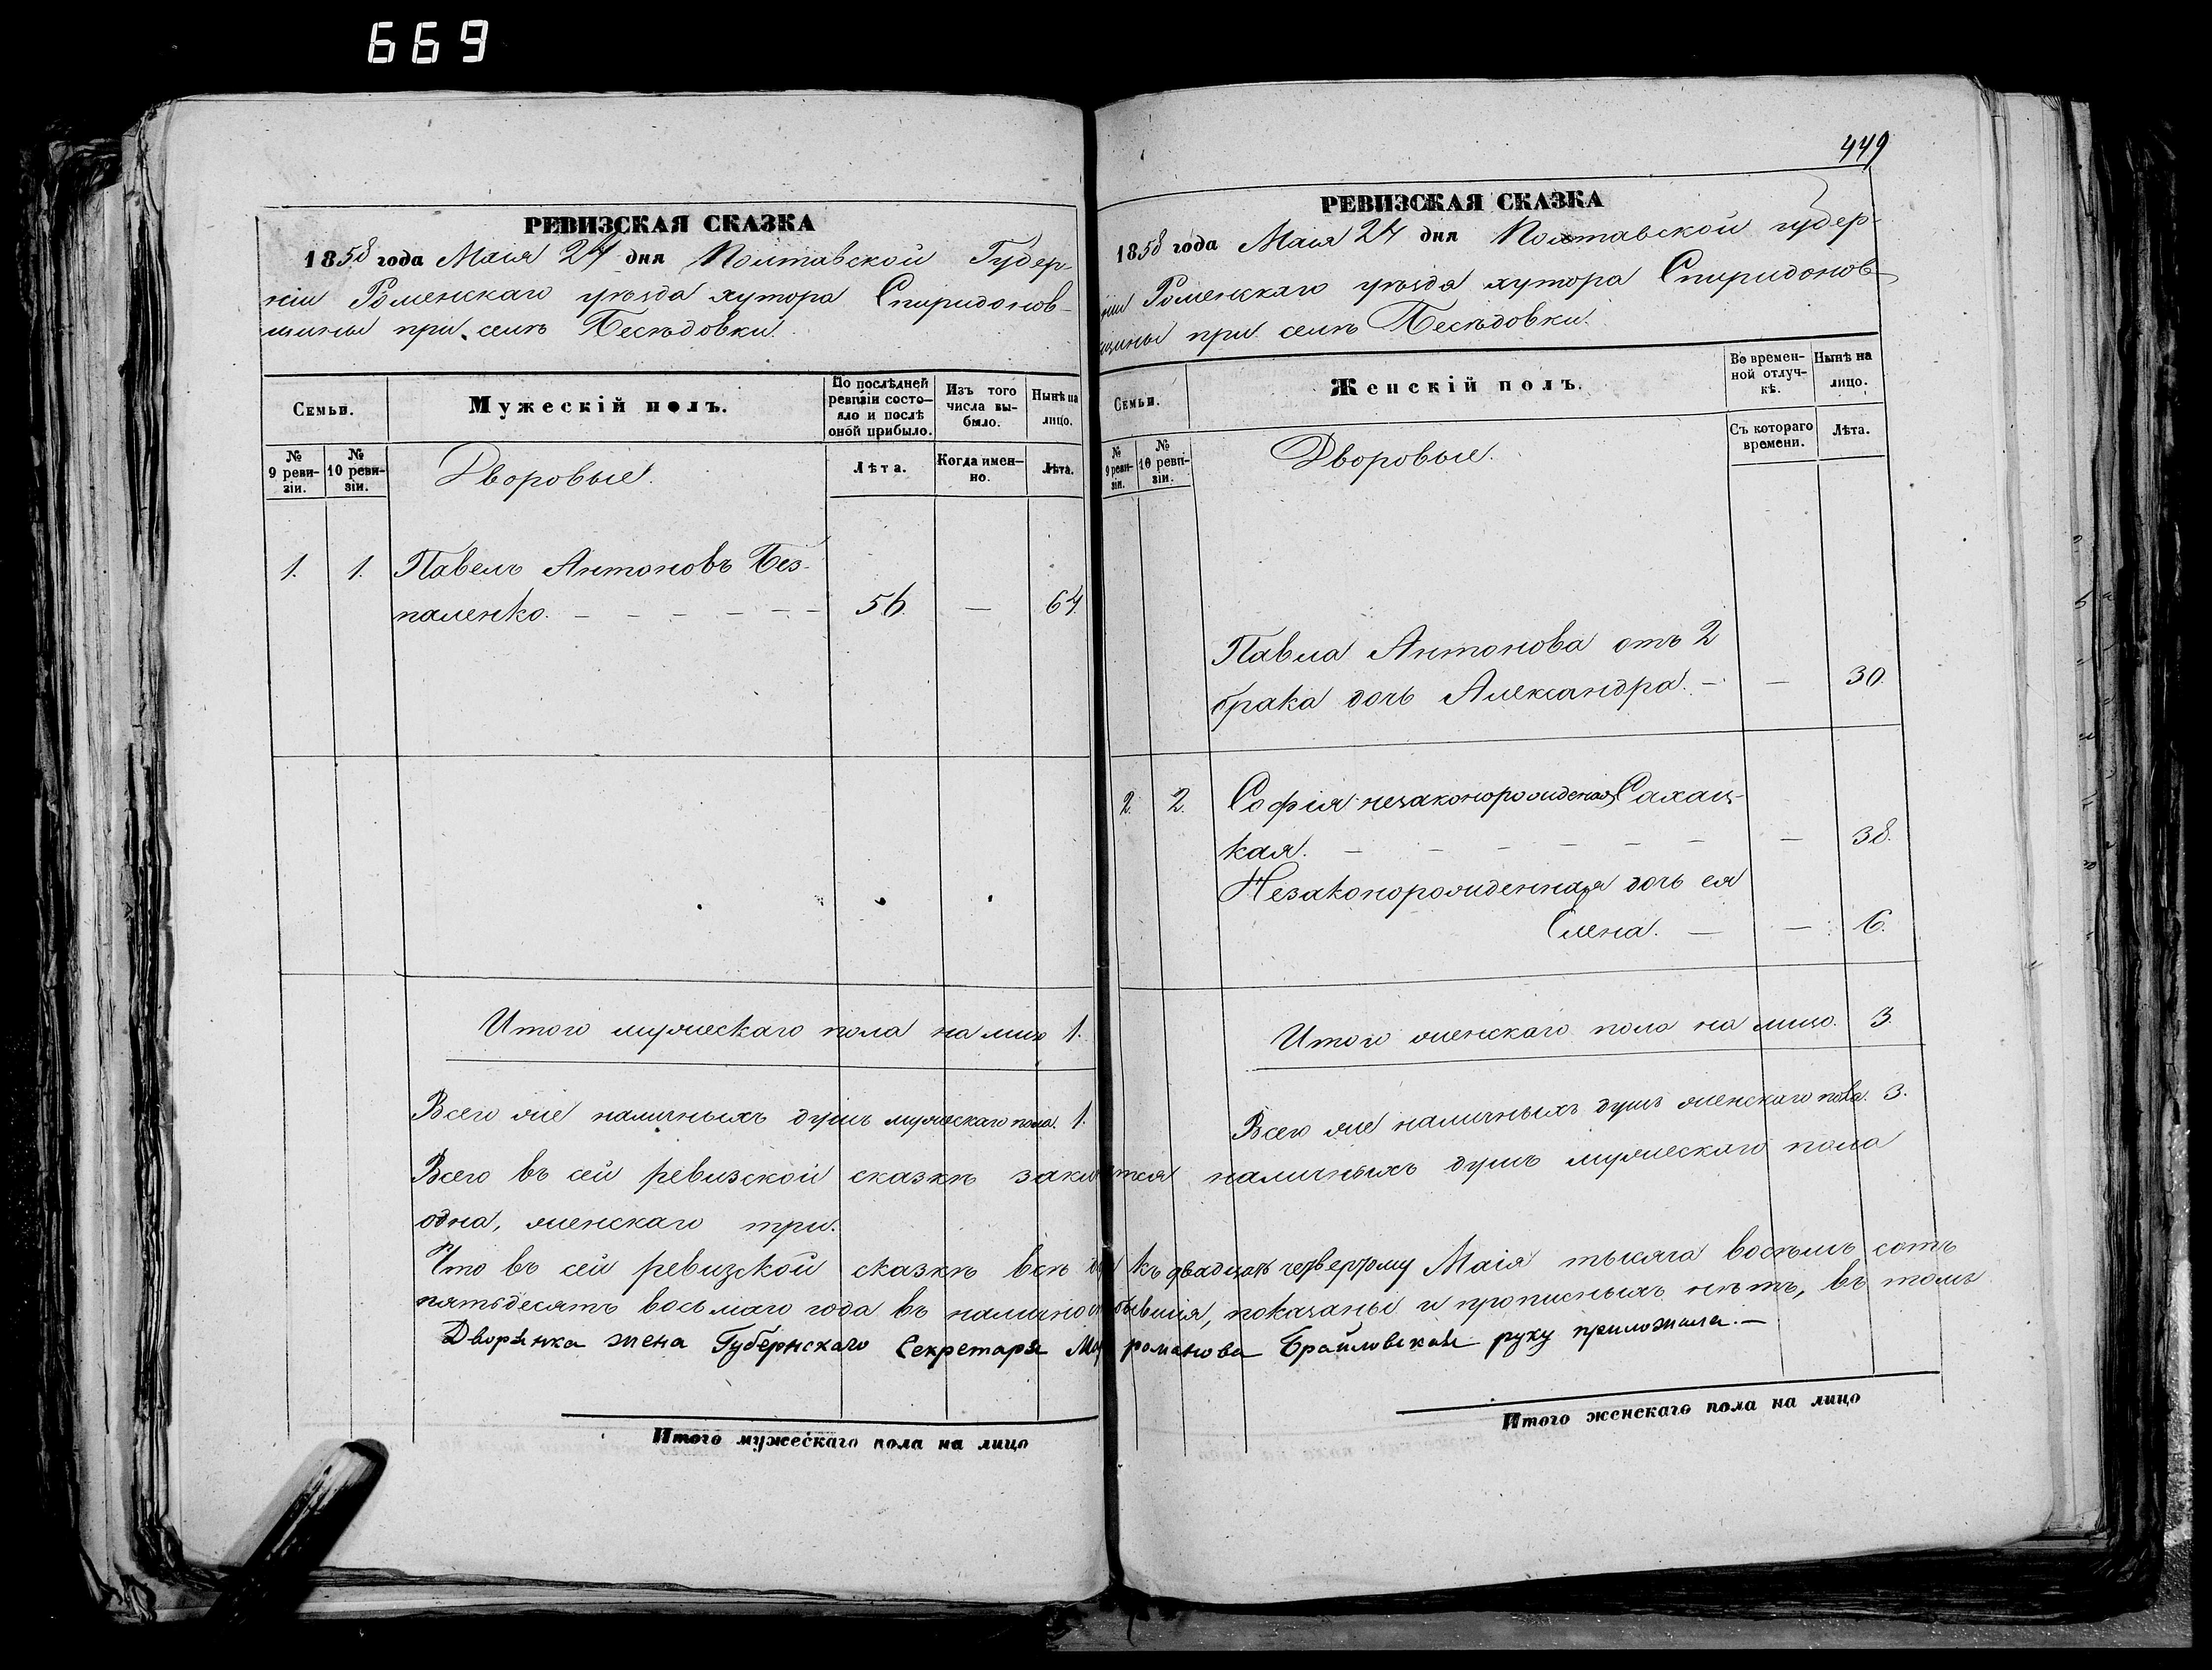 669
РЕВИЗСКАЯ СКАЗКА
1858 года Маія 24 дня Полтавской Губер-
ніи Роменскаго уѣзда хутора Спиридонов-
щины при селѣ Бесѣдовки.
Семьи.
Мужескій полъ.
По послѣдней ревизіи состояло и послѣ оной прибыло.
Изъ того числа выбыло.
Нынѣ на лицо.
№ 9 ревизіи.
№ 10 ревизіи.
Дворовые.
Лѣта.
Когда именно.
Лѣта.
1. 1. Павелъ Антоновъ Без-
паленко. — — — — — — 56. — 64.
Итого мужескаго пола на лицо 1.
Всего же наличныхъ душъ мужескаго пола. 1.
449
РЕВИЗСКАЯ СКАЗКА
1858 года Маія 24 дня Полтавской губер-
ніи Роменскаго уѣзда хутора Спиридонов-
щины при селѣ Бесѣдовки.
Семьи.
Женскій полъ.
Во временной отлучкѣ.
Нынѣ на лицо.
№ 9 ревизіи.
№ 10 ревизіи.
Дворовые.
Съ котораго времени.
Лѣта.
Павла Антонова отъ 2
брака дочь Александра. — — 30.
2. 2. Софія незаконорожденная Сахац-
кая. — — — — — — — 38.
Незаконорожденная дочь ея
Елена. — — 6.
Итого женскаго пола на лицо. 3.
Всего же наличныхъ душъ женскаго пола. 3.
Всего въ сей ревизской сказкѣ наличныхъ душъ мужескаго пола
одна, женскаго три.
Что въ сей ревизской сказкѣ всѣ къ двадцать четвертому Маія тысяча восемь сотъ
пятьдесятъ восьмаго года въ бывшія, показаны и прописныхъ нѣтъ, въ томъ
Дворянка жена Губернскаго Секретаря романова Брайловская руку приложила. —
Итого мужескаго пола на лицо
Итого женскаго пола на лицо